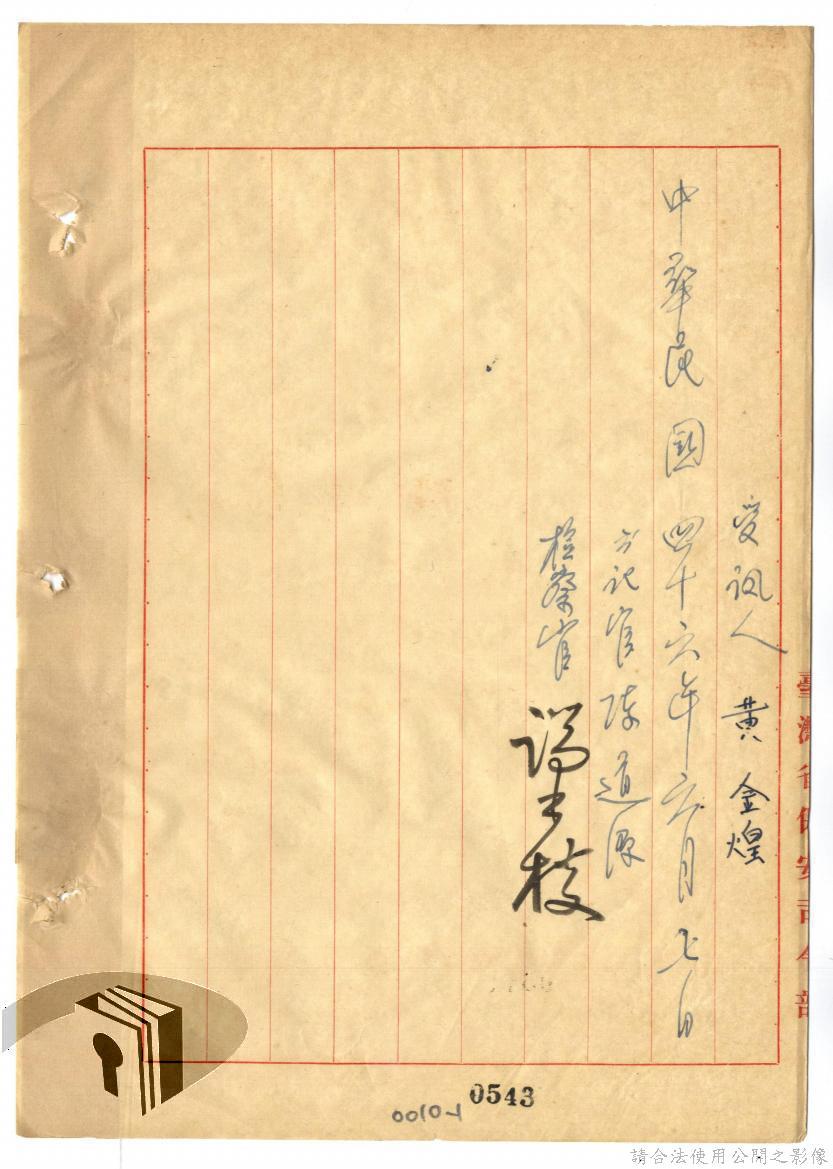 受訊人 黃金煌
中華民國四十六年六月七日
書記官陳道源
檢察官 端木棪
臺灣省保安司令部
0543
00101
請合法使用公開之影像